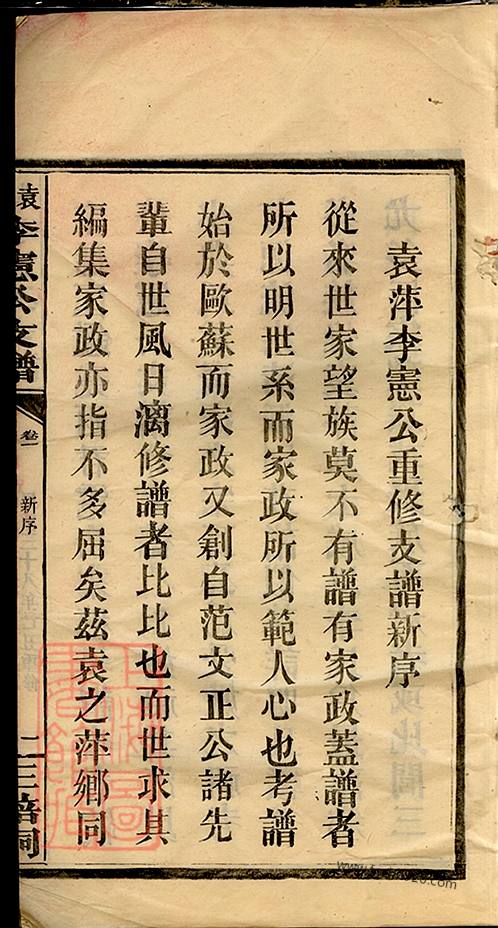 袁萍李憲公重修支譜新序
從來世家望族莫不有譜有家政蓋譜者
所以明世系而家政所以範人心也考譜
始於歐蘇而家政又創自范文正公諸先
輩自世風日漓修譜者比比也而世求其
編集家政亦指不多屈矣茲袁之萍鄉同
李憲公支譜
卷一
新序